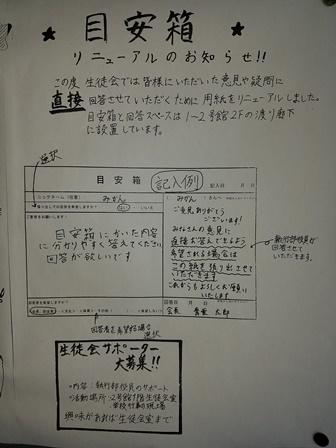 ★ 目安箱 ★
リニューアルのお知らせ!!
この度 生徒会では皆様にいただいた意見や疑問に
直接 回答させていただくために用紙をリニューアルしました。
目安箱と回答スペースは1〜2号館2Fの渡り廊下
に設置しています。
選択
目安箱
記入例
記入日 月 日
ニックネーム(任意)
みかん
はい・いいえ
目安箱にかいた内容
に分かりやすく答えてください。
回答が欲しいです
みかん さんへ
ご意見ありがとう
ございます!
みなさんの意見に
直接お答えできるよう
希望される場合は
この紙を張り出させて
いただきます
これからもよろしくお願い
いたします
回答日 月 日
会長 青葉 太郎
執行部役員が
回答させて
いただきます。
回答者を希望する場合
選択
生徒会サポーター
大募集!!
・内容:執行部役員のサポート
・活動場所:2号館1階生徒会室
学校行事の現場
興味があれば生徒会室まで